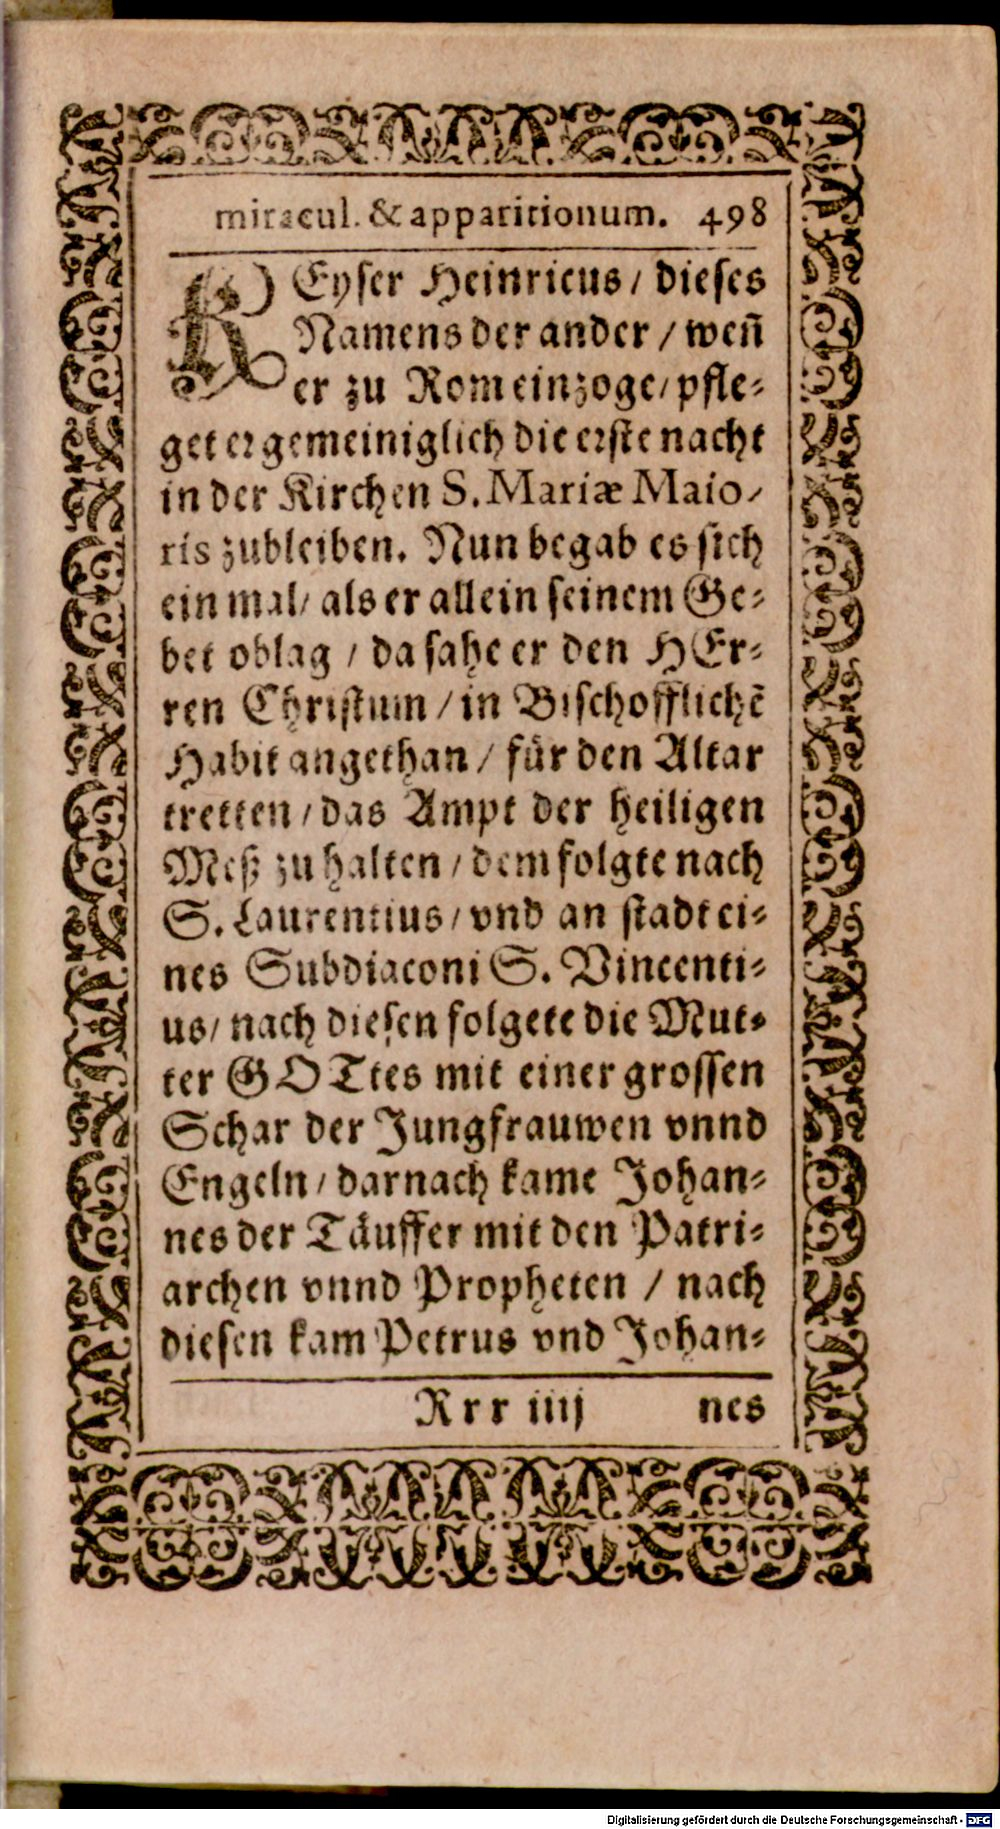 miracul. & apparitionum. 498
KEyser Heinricus / dieses
Namens der ander / weñ
er zu Rom einzoge / pfle-
get er gemeiniglich die erste nacht
in der Kirchen S. Mariæ Maio-
ris zubleiben. Nun begab es sich
ein mal / als er allein seinem Ge-
bet oblag / da sahe er den HEr-
ren Christum / in Bischofflichẽ
Habit angethan / für den Altar
tretten / das Ampt der heiligen
Meß zu halten / dem folgte nach
S. Laurentius / vnd an stadt ei-
nes Subdiaconi S. Vincenti-
us / nach diesen folgete die Mut-
ter GOTtes mit einer grossen
Schar der Jungfrauwen vnnd
Engeln / darnach kame Johan-
nes der Täuffer mit den Patri-
archen vnnd Propheten / nach
diesen kam Petrus vnd Johan-
Rrr iiij nes
Digitalisierung gefördert durch die Deutsche Forschungsgemeinschaft - DFG